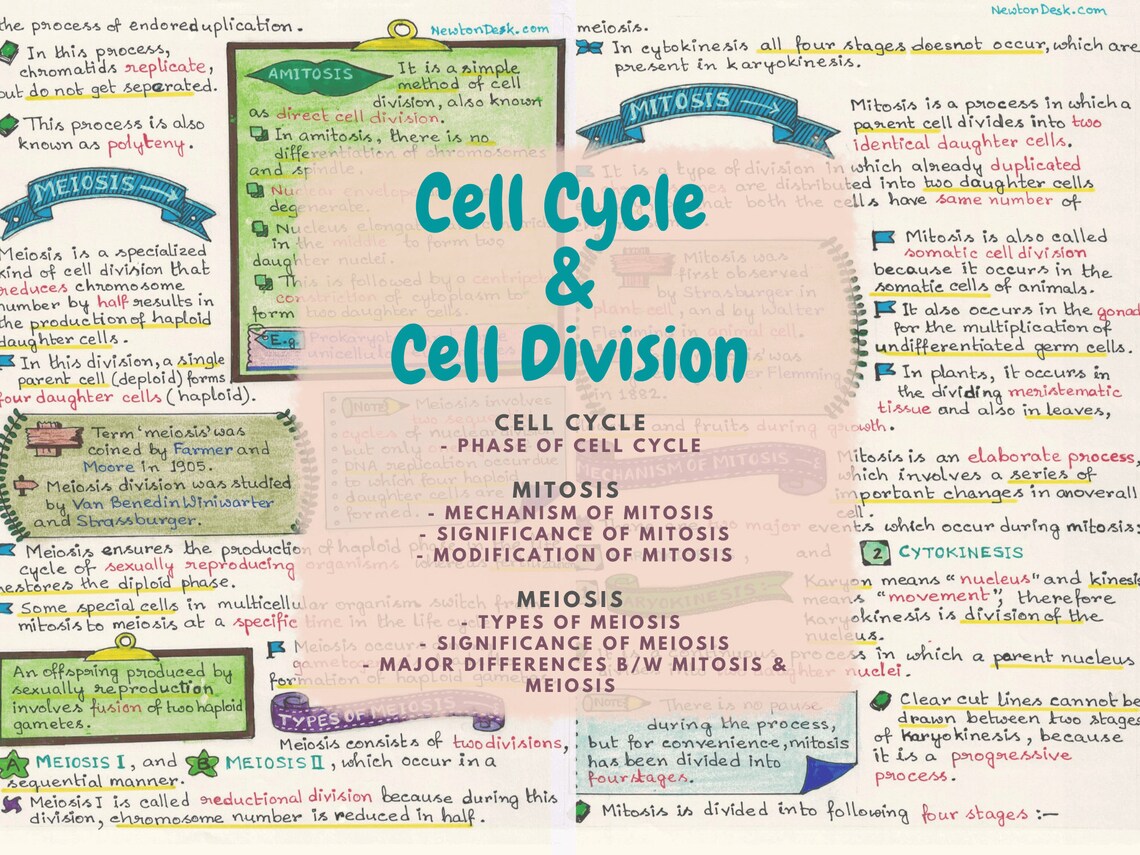 the process of endoreduplication.
In this process,
chromatids replicate,
but do not get seperated.
This process is also
known as polyteny.
MEIOSIS
Meiosis is a specialized
kind of cell division that
reduces chromosome
number by half results in
the production of haploid
daughter cells.
In this division, a single
parent cell (deploid) forms
four daughter cells (haploid).
Term 'meiosis' was
coined by Farmer and
Moore in 1905.
Meiosis division was studied
by Van Benedin Winiwarter
and Strassburger.
Meiosis ensures the production of haploid phase in the
cycle of sexually reproducing organisms whereas fertilization
restores the diploid phase.
Some special cells in multicellular organism switch from
mitosis to meiosis at a specific time in the life
An offspring produced by
sexually reproduction
involves fusion of two haploid
gametes.
Meiosis occurs
formation of haploid gametes.
TYPES OF MEIOSIS
Meiosis consists of two divisions,
A MEIOSIS I, and B MEIOSIS II, which occur in a
sequential manner.
Meiosis I is called reductional division because during this
division, chromosome number is reduced in half.
NewtonDesk.com
AMITOSIS
It is a simple
method of cell
division, also known
as direct cell division.
In amitosis, there is no
differentiation of chromosomes
and spindle.
Nuclear envelope
degenerate.
Nucleus elongates
in the middle to form two
daughter nuclei.
This is followed by a centripetal
constriction of cytoplasm to
form two
E.g.
Prokaryotes
unicellular
NOTE
Meiosis involves
two sequential
cycles of nuclear
but only
DNA replication
to which four haploid
daughter cells are
formed.
Cell Cycle
&
Cell Division
CELL CYCLE
- PHASE OF CELL CYCLE
MITOSIS
- MECHANISM OF MITOSIS
- SIGNIFICANCE OF MITOSIS
- MODIFICATION OF MITOSIS
MEIOSIS
- TYPES OF MEIOSIS
- SIGNIFICANCE OF MEIOSIS
- MAJOR DIFFERENCES B/W MITOSIS &
MEIOSIS
NewtonDesk.com
meiosis.
In cytokinesis all four stages doesnot occur, which are
present in karyokinesis.
MITOSIS
Mitosis is a process in which a
parent cell divides into two
identical daughter cells.
It is a type of division in which already duplicated
are distributed into two daughter cells
that both the cells have same number of
Mitosis was
first observed
by Strasburger in
plant cell, and by Walter
Flemming in animal cell.
was
Flemming
in 1882.
Mitosis is also called
somatic cell division
because it occurs in the
somatic cells of animals.
It also occurs in the gonads
for the multipication of
undifferentiated germ cells.
In plants, it occurs in
the dividing meristematic
tissue and also in leaves,
and fruits during growth.
MECHANISM OF MITOSIS
Mitosis is an elaborate process,
which involves a series of
important changes in overall
cell.
There are two major events which occur during mitosis:
and
2 CYTOKINESIS
KARYOKINESIS
Karyon means "nucleus" and kinesis
means "movement", therefore
karyokinesis is division of the
nucleus.
It is a continuous process in which a parent nucleus
divides into two daughter nuclei.
NOTE
There is no pause
during the process,
but for convenience, mitosis
has been divided into
four stages.
Clear cut lines cannot be
drawn between two stages
of karyokinesis, because
it is a progressive
process.
Mitosis is divided into following four stages :-